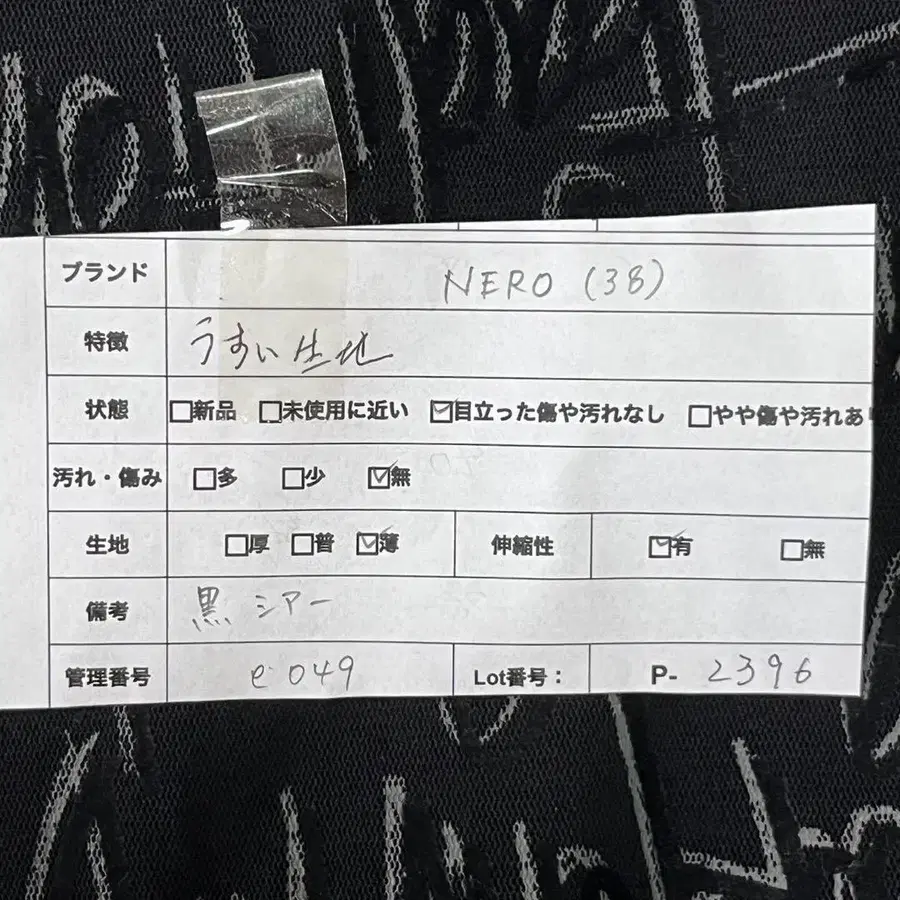 ブランド NERO (38)
特徴 うすい生地
状態 □新品 □未使用に近い ☑目立った傷や汚れなし □やや傷や汚れあり
汚れ・傷み □多 □少 ☑無
生地 □厚 □普 ☑薄 伸縮性 ☑有 □無
備考 黒 シアー
管理番号 e 049 Lot番号： P- 2396